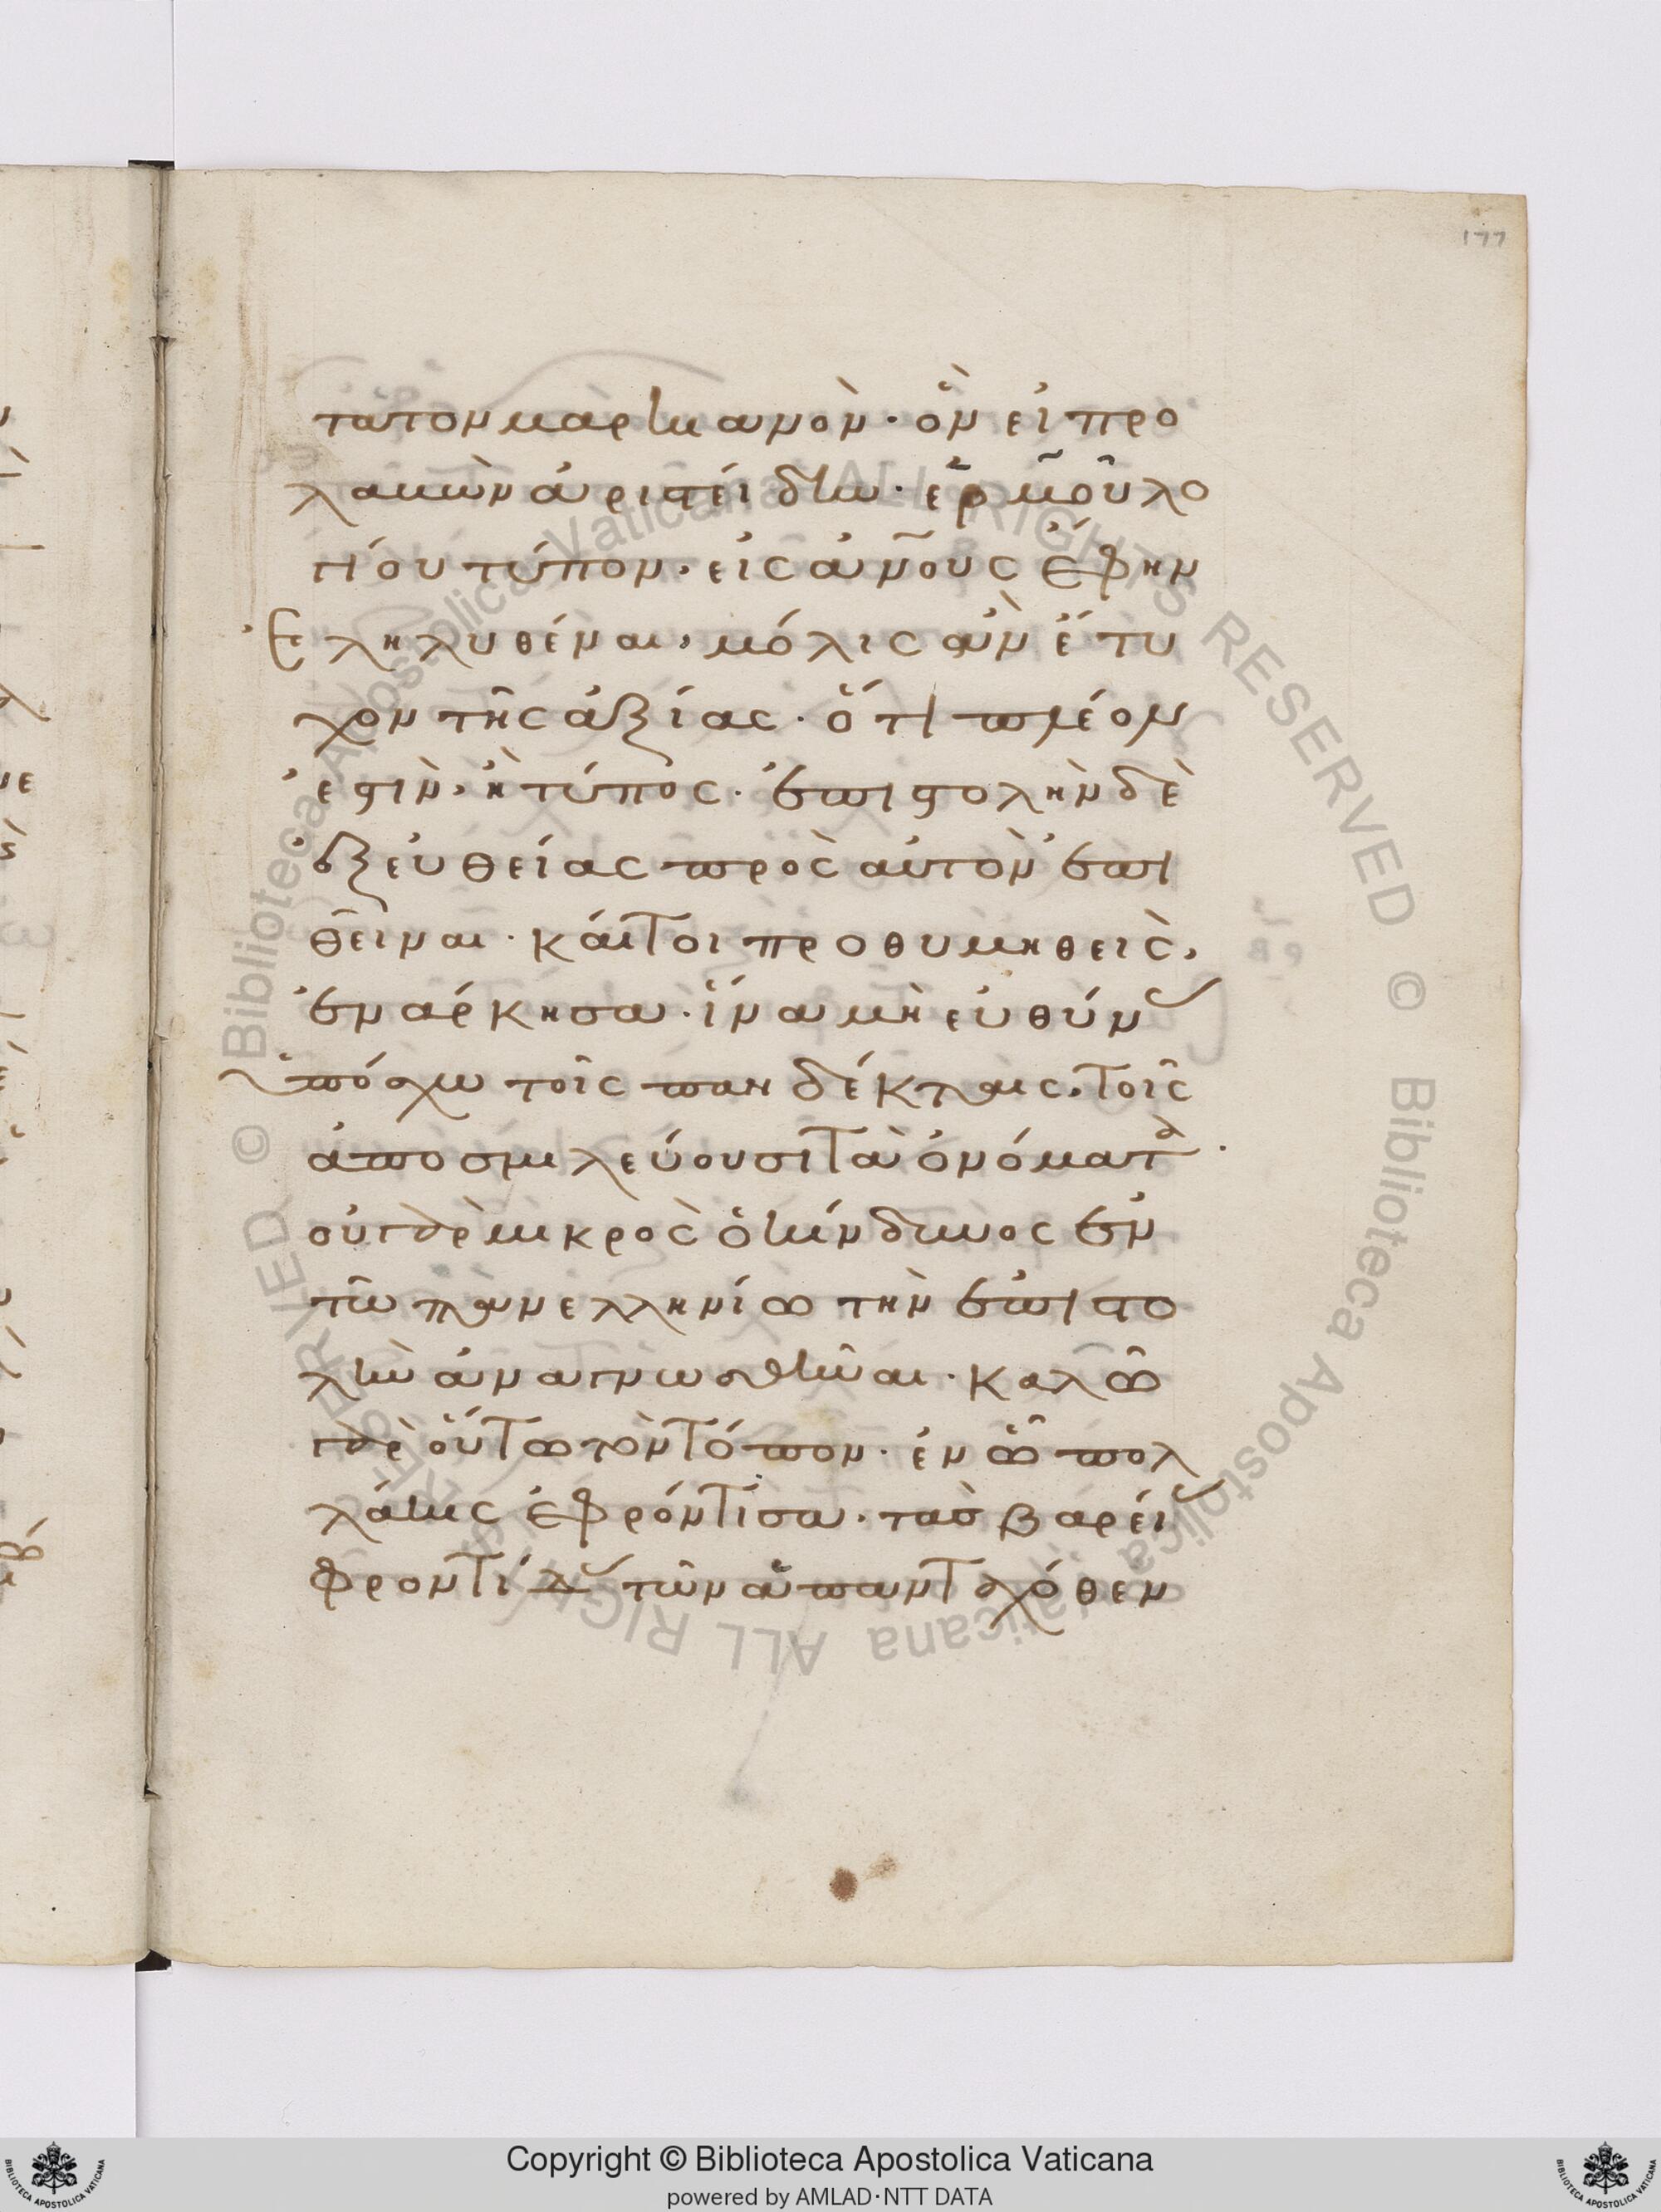 177
τατον μαρκιανὸν· ὃν εἰ προ
λαβὼν ἀριστείδην· ἑρμοῦ λο
γίου τύπον· εἰς ἀν̅ο̅υς ἔφην
ἐληλυθέναι, μόλις ἂν ἔτυ
χον τῆς ἀξίας· ὅτι πλέον
ἐστὶν, ἢ τύπος· ἐπιστολὴν δὲ
ἐξ εὐθείας πρὸς αὐτὸν ἐπι
θεῖναι· καίτοι προθυμηθεὶς,
ἐνάρκησα· ἵνα μὴ εὐθύν
ὑπόσχω τοῖς πανδέκταις, τοῖς
ἀποσμιλεύουσι τὰ ὀνόματα·
οὐ γὰρ μικρὸς ὁ κίνδυνος ἐν
τῶ πανελληνίω τὴν ἐπιστο
λὴν ἀναγνωσθῆναι· καλῶ
γὰρ οὕτω τὸν τόπον· ἐν ὧ πολ
λάκις ἐφρόντισα· τὰς βαρεί
φροντίδ τῶν ἁπανταχόθεν
Copyright © Biblioteca Apostolica Vaticana
powered by AMLAD·NTT DATA